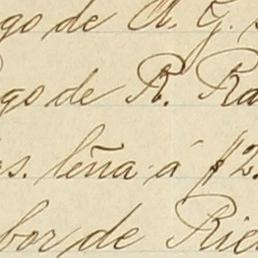 go de A. G.
go de R. Ra
s. leña á $ 2.
bor de Rie